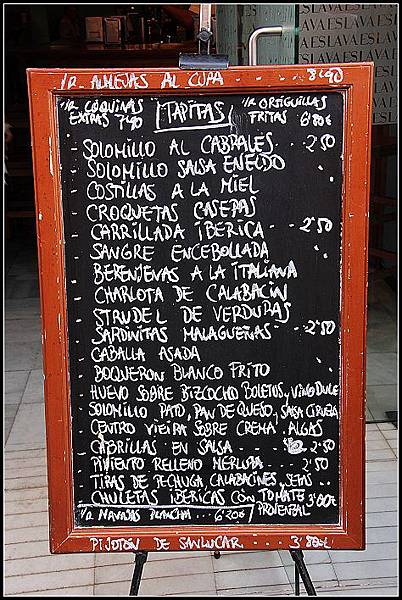 ESLAVA ESLAVA
1/2 ALMEJAS AL CUPA . . . . 8'40
1/2 COQUINAS EXTRAS 7'40
TAPITAS
1/2 ORTIGUILLAS FRITAS 6'80€
SOLOMILLO AL CABRALES . . 2'50
SOLOMILLO SALSA ENELDO
COSTILLAS A LA MIEL
CROQUETAS CASERAS
CARRILLADA IBERICA . . 2'50
SANGRE ENCEBOLLADA
BERENJENAS A LA ITALIANA
CHARLOTA DE CALABACIN
STRUDEL DE VERDURAS
SARDINITAS MALAGUEÑAS . . 2'50
CABALLA ASADA
BOQUERON BLANCO FRITO
HUEVO SOBRE BIZCOCHO BOLETUS, VINO DULCE
SOLOMILLO PATO, PAN DE QUESO, SALSA CIRUELA
CENTRO VIEIRA SOBRE CREMA ALGAS
CABRILLAS EN SALSA . . . 2'50
PIMIENTO RELLENO MERLUZA . . 2'50
TIRAS DE PECHUGA, CALABACINES, SETAS
CHULETAS IBERICAS CON TOMATE PROVENZAL 3'00€
1/2 NAVAJAS PLANCHA . . . 6'20€
PIJOTÓN DE SANLUCAR . . . 3'80€